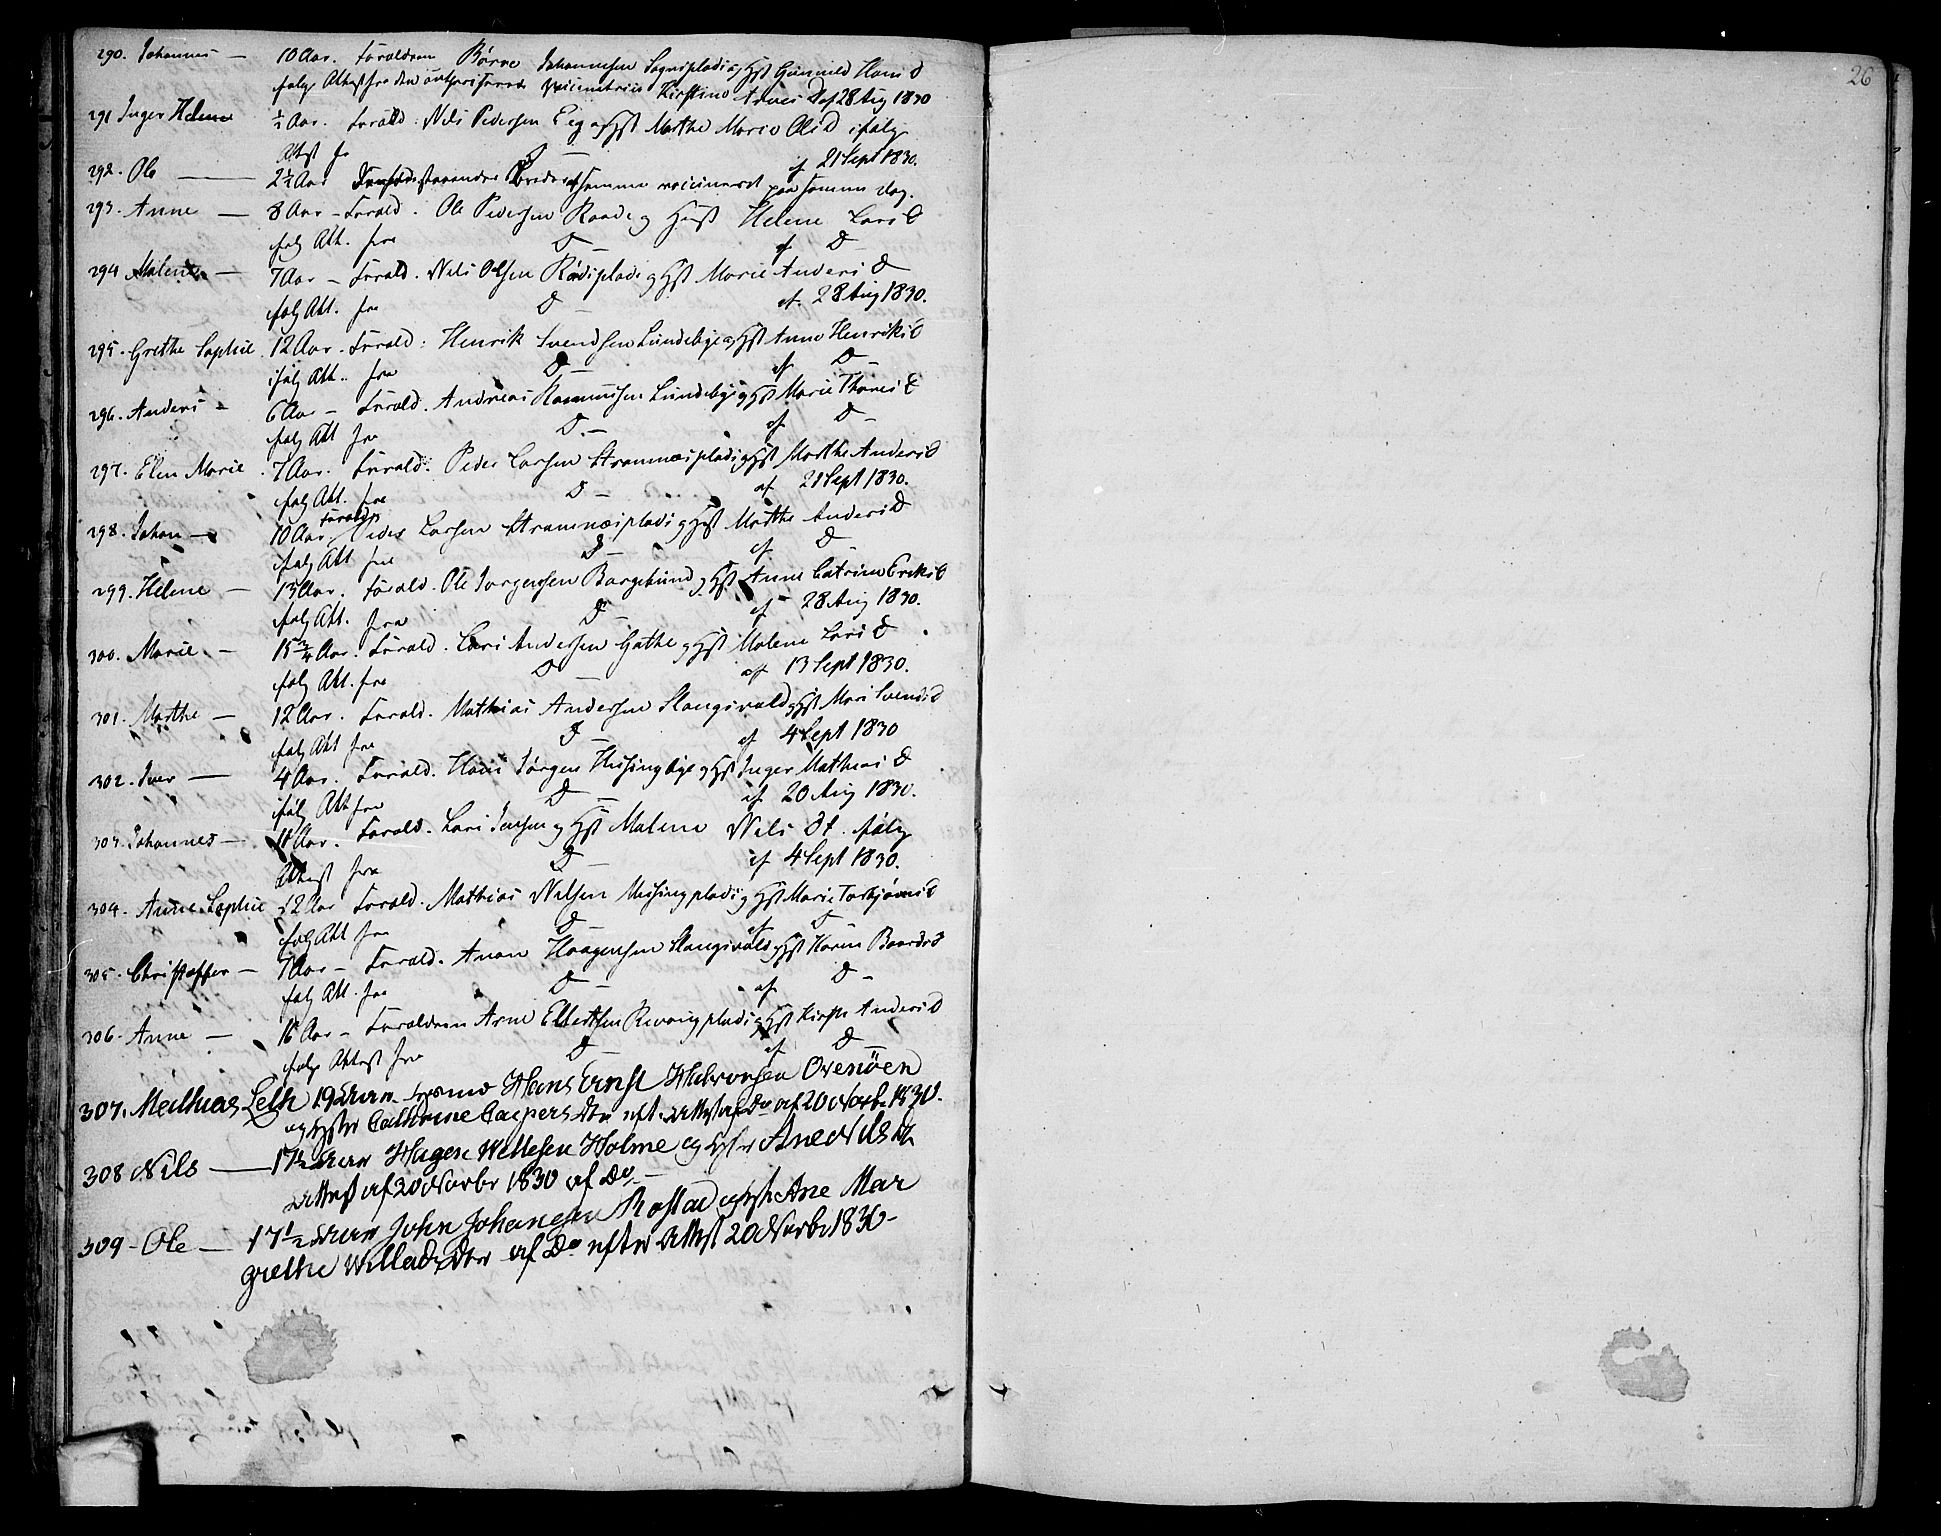 290. Johannes — 10 Aar. Forældrene Børre Johannesen Sogneplads og Hst Gunnild Hans D
følge Attest fra den authoriserede Vaccinatrice Kirstine Arnes D af 28 Aug 1830
291 Inger Helene ½ Aar. Foræld: Nils Pedersen Eeg og Hst Marthe Marie Ols D ifølg
Attest fra D — af 21 Sept 1830.
292. Ole — 2½ Aar samme vaccineret paa samme dag.
293. Anne — 8 Aar — Foræld. Ole Pedersen Raade og Hust Helene Lars D
følg Att. fra D — af D —
294 Malene — 7 Aar — Foræld. Nils Olsen Rødsplads og Hst Marie Anders D
følg Att. fra D af 28 Aug 1830.
295. Grethe Sophie. 12 Aar. Foræld: Henrik Svendsen Lundebye og Hst Anne Henriks D
ifølg Att. fra D — af D —
296. Anders — 6 Aar — Foræld. Andreas Rasmussen Lundebye og Hst Marie Thores D
følg Att fra D. — af D —
297. Elen Marie. 7 Aar. Foræld. Peder Larsen Stramnæsplads og Hst Marthe Anders D
følg Att. fra D — af 21 Sept 1830.
298. Johan — 10 Aar Foræld. Peder Larsen Stramnæsplads og Hst Marthe Anders D
følg Att fra D — af D
299. Helene — 13 Aar. Foræld. Ole Jorgensen Borgesund og Hst Anne Catrine Eriks D
følg Att. fra D — af 28 Aug 1830.
300. Marie. — 15¾ Aar. Foræld. Lars Andersen Gathe og Hst Malene Lars D
følg Att. fra D — af 13 Sept 1830.
301. Marthe — 12 Aar. Foræld. Mathias Andersen Slangsvald og Hst Mari Svends D
følg Att fra D — af 4 Sept 1830
302. Iver — 4 Aar. Foræld. Hans Jørgen Husingbye og Hst Inger Mathias D
ifølg Att fra D — af 20 Aug 1830.
303. Johannes — 11 Aar. Foræld. Lars Jensen og Hst Malene Nils Dt. følg
Attest fra D — af 4 Sept 1830.
304. Anne Sophie ½ Aar Foræld. Mathias Nilsen Husingplads og Hst Marie Torbjørns D
følg Att fra D af D
305. Christopher — 7 Aar — Foræld. Anon Haagensen Slangsvald og Hst Karen Baards D
følg Att. fra D — af D —
306. Anne — 16 Aar — Forældrene Arne Elbertsen Revougplads og Hst Kirsti Anders D
følge Attest fra D af D —
307. Mathias Leth 19 Aar. Hans Ernst Halvorsen Oreröen
og Hustr Cathrine Caspers Dtr eft. Attest af Do af 20 Novbr 1830.
308 Nils — 17½ Aar Hagen Nellesen Holme og Hustr Ane Nils Dt
Attest af 20 Novbr 1830 af Do. —
309 — Ole — 17½ Aar John Johansen Rostad og Hst Ane Mar
grethe Willads Dtr af Do efter Attest 20 Novbr 1830 —
26